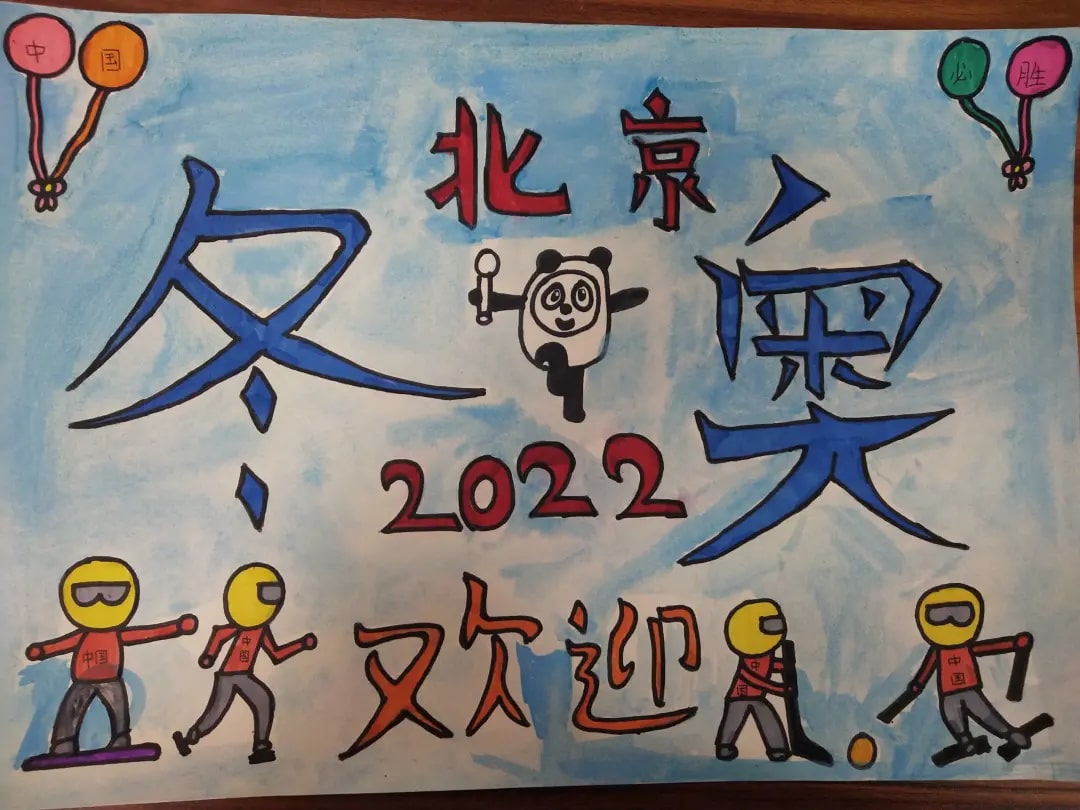 中国
必胜
北京
冬奥
2022
欢迎
中国
中国
中国
中国